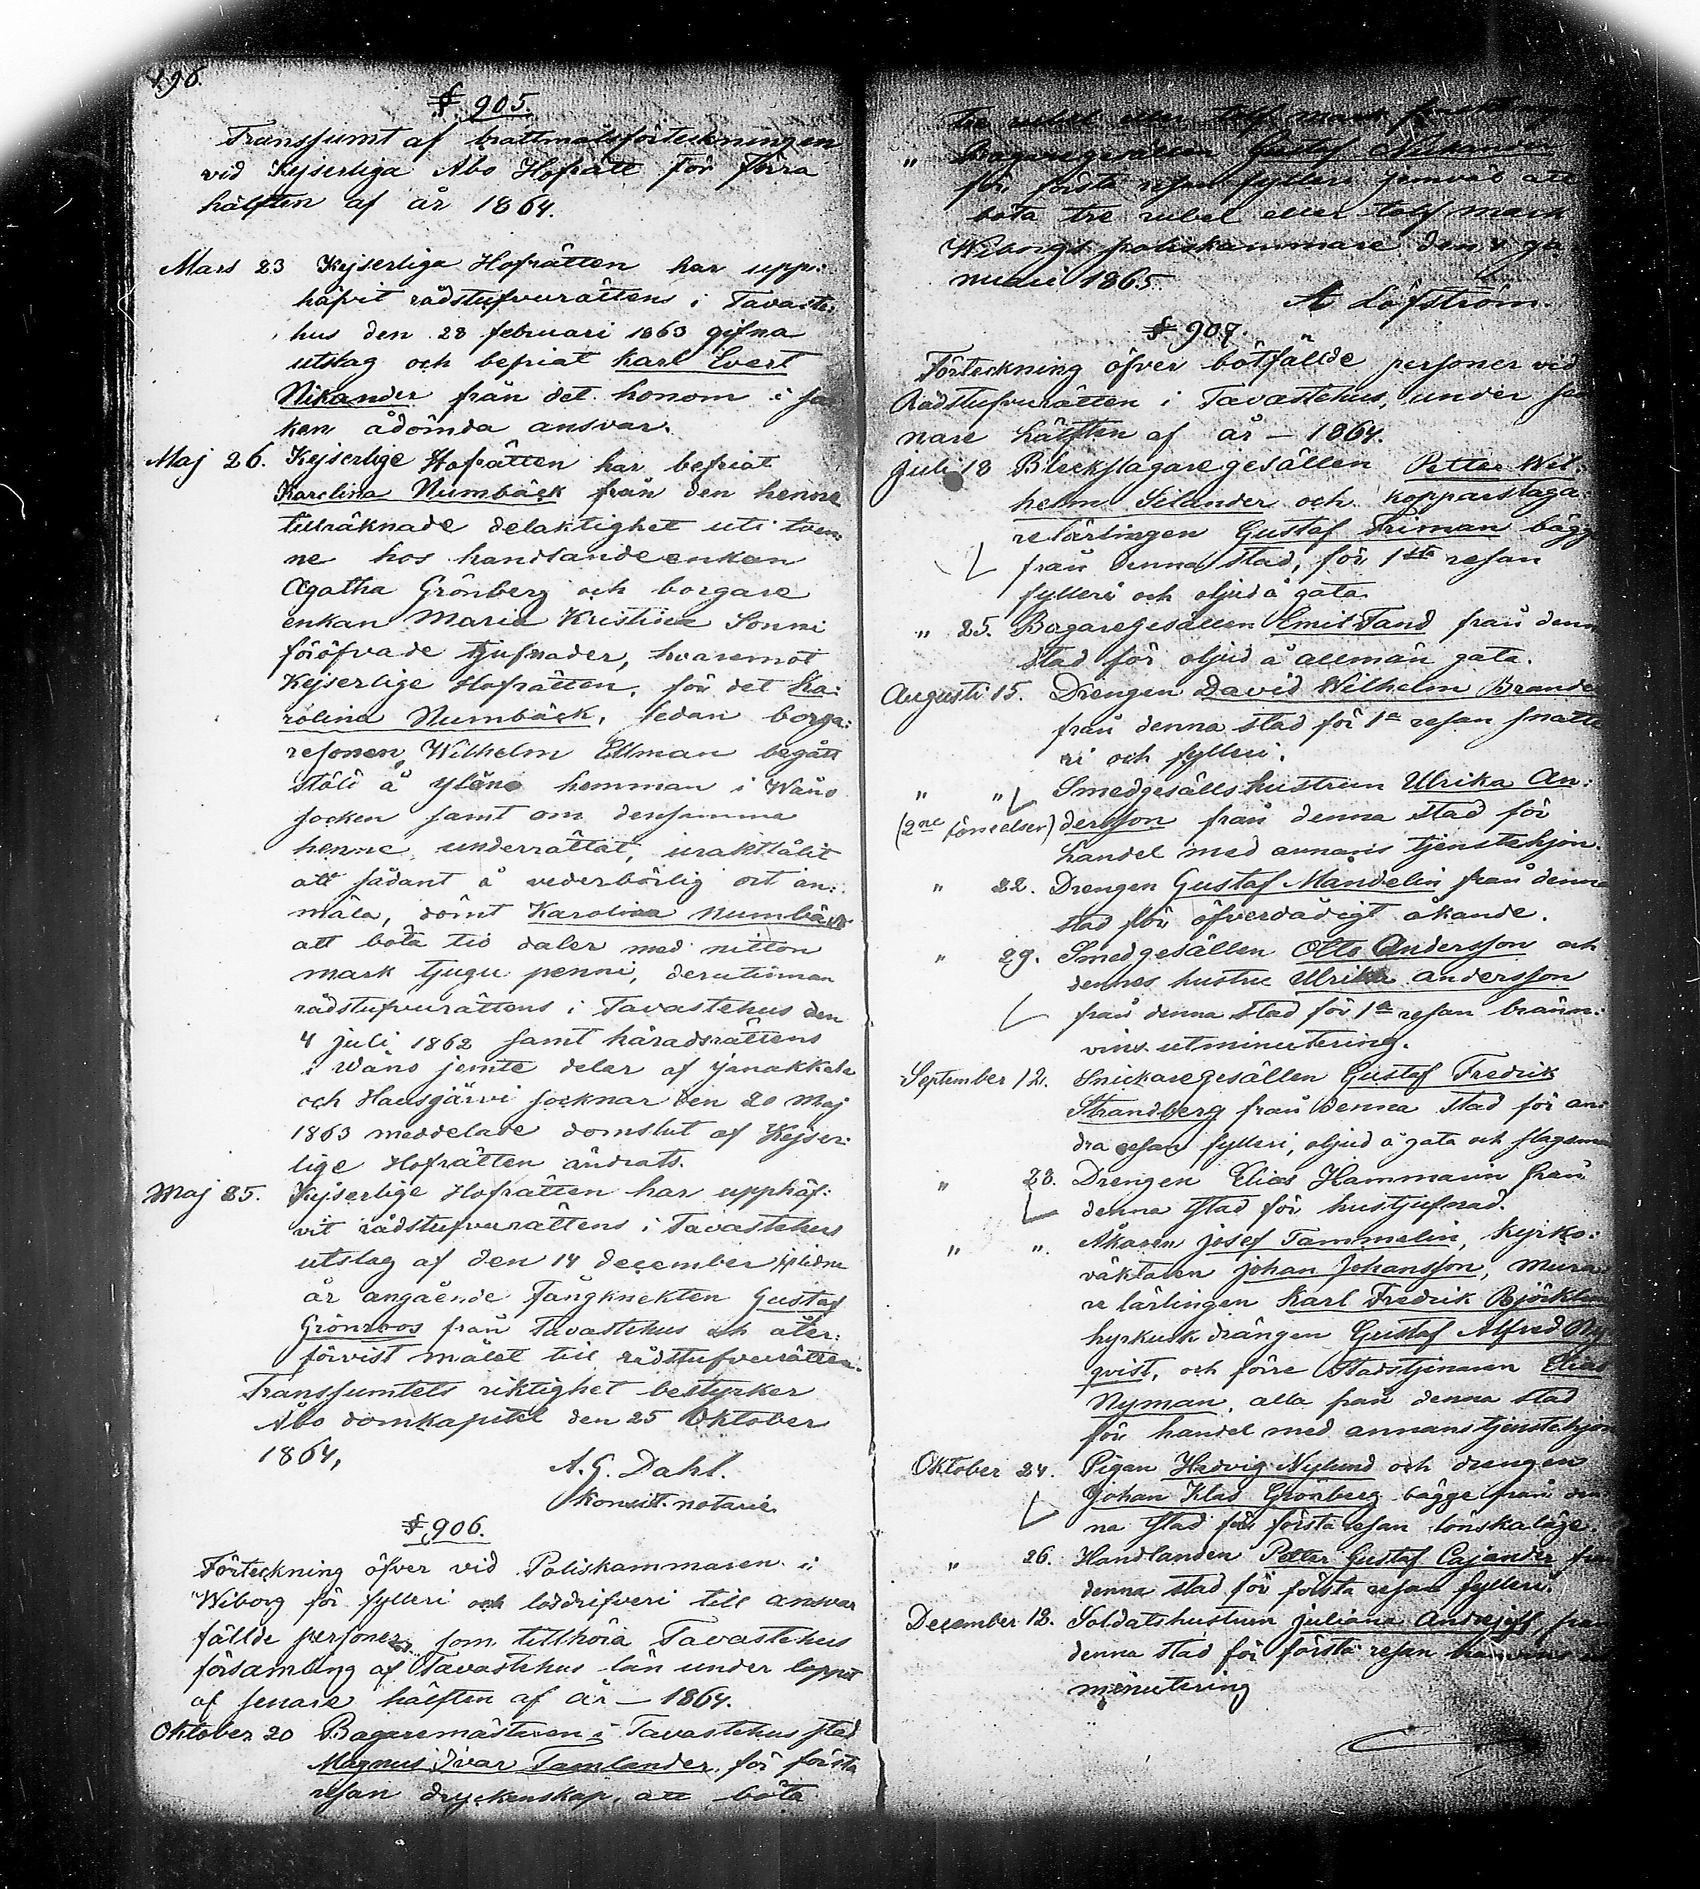 496.
§ 905.
Transsumt af brottmålsförteckningen
vid Kejserliga Åbo Hofrätt för förra
hälften af år 1864.
Mars 23 Kejserliga Hofrätten har upp:
häfvit rådstufvurättens i Tavaste:
hus den 28 februari 1863 gifna
utslag och befriat Karl Evert
Nikander från det honom i sa
ken ådömda ansvar.
Maj 26. Kejserlige Hofrätten har befriat
Karolina Numbäck från den henne
tillräknade delaktighet uti tven:
ne hos handlandeenkan
Agatha Grönberg och borgare
enkan Maria Kristina Sonni
föröfvade tjufnader, hvaremot
Kejserlige Hofrätten, för det Ka:
rolina Numbäck, sedan borga:
resonen Wilhelm Ellman begått
stöld å Yläne hemman i Wånå
socken samt om densamma
henne underrättat, uraktlåtit
att sådant å vederbörlig ort an:
mäla, dömt Karolina Numbäck
att böta tio daler med nitton
mark tjugu penni, derutinnan
rådstufvurättens i Tavastehus den
4 juli 1862 samt häradsrättens
i Wånå jemte delar af Janakkala
och Hausjärvi socknar den 20 Maj
1863 meddelade domslut af Kejser:
lige Hofrätten ändrats.
Maj 25. Kejserlige Hofrätten har upphäf:
vit rådstufvurättens i Tavastehus
utslag af den 14 december sistlidne
år angående Fångknekten Gustaf
Grönroos från Tavastehus och åter:
förvist målet till rådstufvurätten.
Transsumtets riktighet bestyrker
Åbo domkapitel den 25 Oktober
1864,
A. G. Dahl.
Konsist. notarie
§ 906.
Förteckning öfver vid Poliskammaren i
Wiborg för fylleri och lösdrifveri till ansvar
fällde personer, som tillhöra Tavastehus
församling af Tavastehus län under loppet
af senare hälften af år – 1864.
Oktober 20 Bagaremästaren i Tavastehus stad
Magnus Ivar Tamlander för första
resan dryckenskap, att böta
tre rubel eller tolf mark
" Bagaregesällen Gustaf Nikander
för första resan fylleri jemväl att
böta tre rubel eller tolf mark
Wiborgs poliskammare den 4 ja
nuari 1865.
A Löfström.
§ 907.
Förteckning öfver bötfällde personer vid
Rådstufvurätten i Tavastehus, under se
nare hälften af år – 1864.
Juli 18 Bleckslagaregesällen Petter Wil:
helm Selander och kopparslaga:
relärlingen Gustaf Friman bägg
från denna stad, för 1sta resan
fylleri och oljud å gata.
" 25. Bagaregesällen Emil Tand från denn
stad för oljud å allmän gata.
Augusti 15. Drengen David Wilhelm Brande
från denna stad för 1a resan snatte
ri och fylleri.
" " Smedgesällshustrun Ulrika An:
(2ne förseelser) dersson från denna stad för
handel med annans tjenstehjon.
" 22. Drengen Gustaf Mandelin från denna
stad för öfverdådigt åkande.
" 29. Smedgesällen Otto Andersson och
dennes hustru Ulrika Andersson
från denna stad för 1a resan bränn:
vins utminutering.
September 12. Snickaregesällen Gustaf Fredrik
Strandberg från denna stad för an:
dra resan fylleri, oljud å gata och slagsmå
" 23. Drengen Elias Hammarin från
denna stad för hustjufnad.
" ". Åkaren Josef Tammelin, Kyrko:
väktaren Johan Johansson, Mura
re lärlingen Karl Fredrik Björklun
hyrkusk drängen Gustaf Alfred Ny
qvist, och förre Stadstjenaren Elias
Nyman, alla från denna stad
för handel med annans tjenstehjon
Oktober 24. Pigan Hedvig Nylund och drengen
Johan Klas Grönberg bägge från den
na stad för första resan lönskaläge.
" 26. Handlanden Petter Gustaf Cajander från
denna stad för första resan fylleri.
December 12. Soldatshustrun Juliana Andrejeff från
denna stad för första resan
minutering